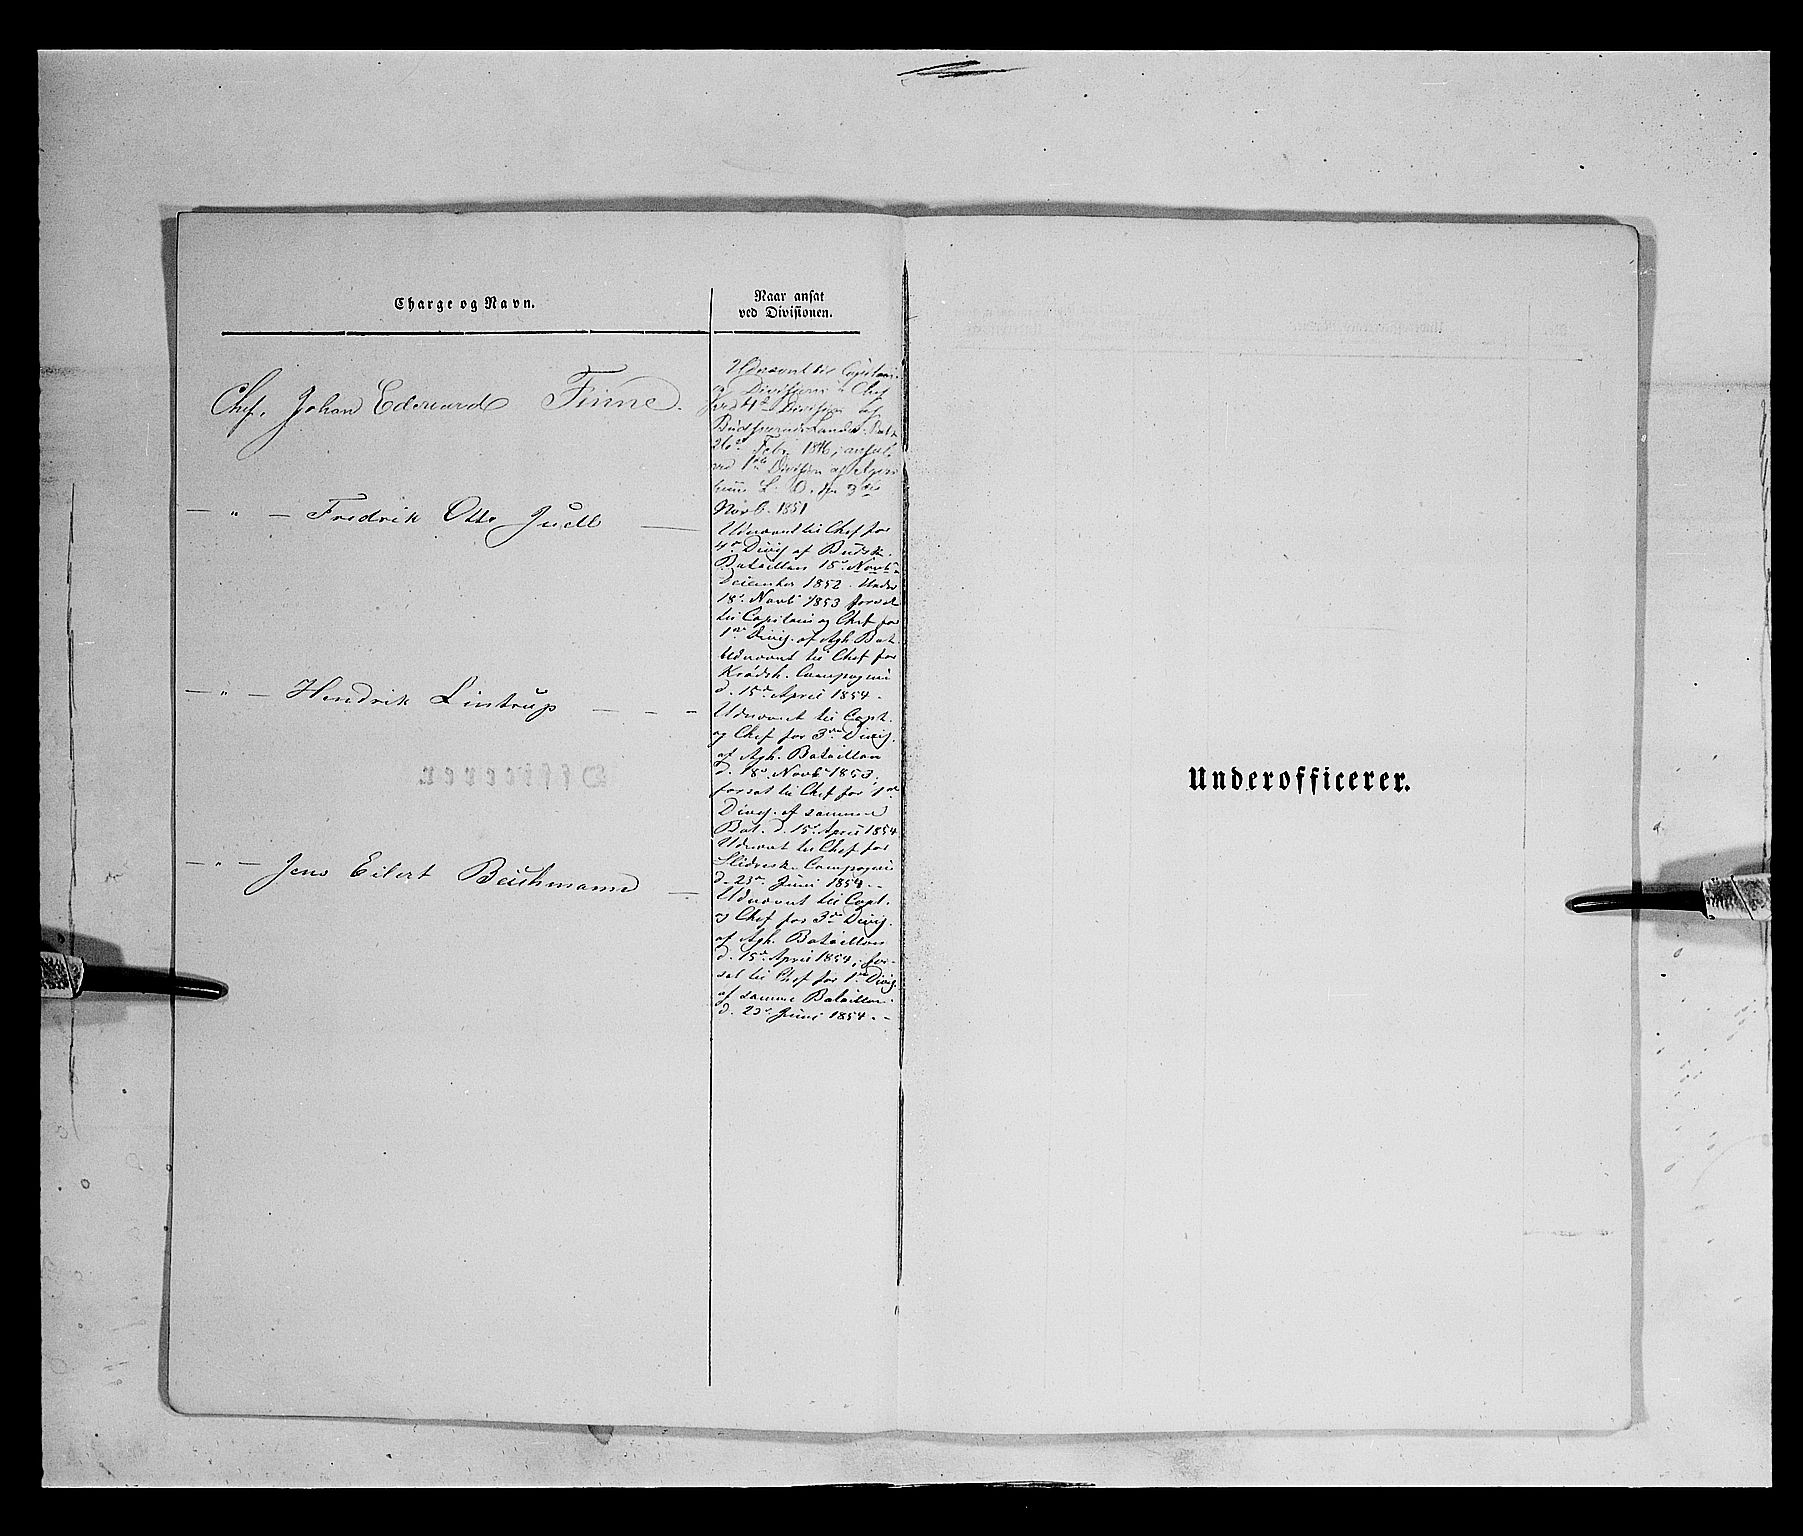 Charge og Navn.
Naar ansat
ved Divisionen.
Chef, Johan Edevard Finne.
Udnævnt til Capitain
og Divisions Chef
ved 4de Division af
Budskeruds Landev. Bat.
26de Feb. 1846; ansat
ved 1ste Division af Agers
huus L. den 3die
Novb. 1851
— " — Fredrik Otto Juell —
Udnævnt til Chef for
4de Divis. af Budsk.
Bataillon 18de Novb.
December 1852. Under
18de Novb. 1853 forsat
til Capitain og Chef for
1ste Divis. af Agh. Bat.
Udnævnt til Chef for
Krødsh. Compagni
d. 15de April 1854.
— " — Hendrik Lintrup — — —
Udnævnt til Capt.
og Chef for 3die Divis.
af Agh. Bataillon
d. 18de Novb. 1853.
forsat til Chef for 1ste
Divis. af samme
Bat. d. 15de April 1854
Udnævnt til Chef for
Slidresk. Compagni
d. 23de Juni 1854.
— " — Jens Eilert Beichmann —
Udnævnt til Capt.
og Chef for 3die Divis.
af Agh. Bataillon
d. 15de April 1854; for-
sat til Chef for 1ste Divis.
af samme Bataillon
d. 23de Juni 1854.
Underofficerer.